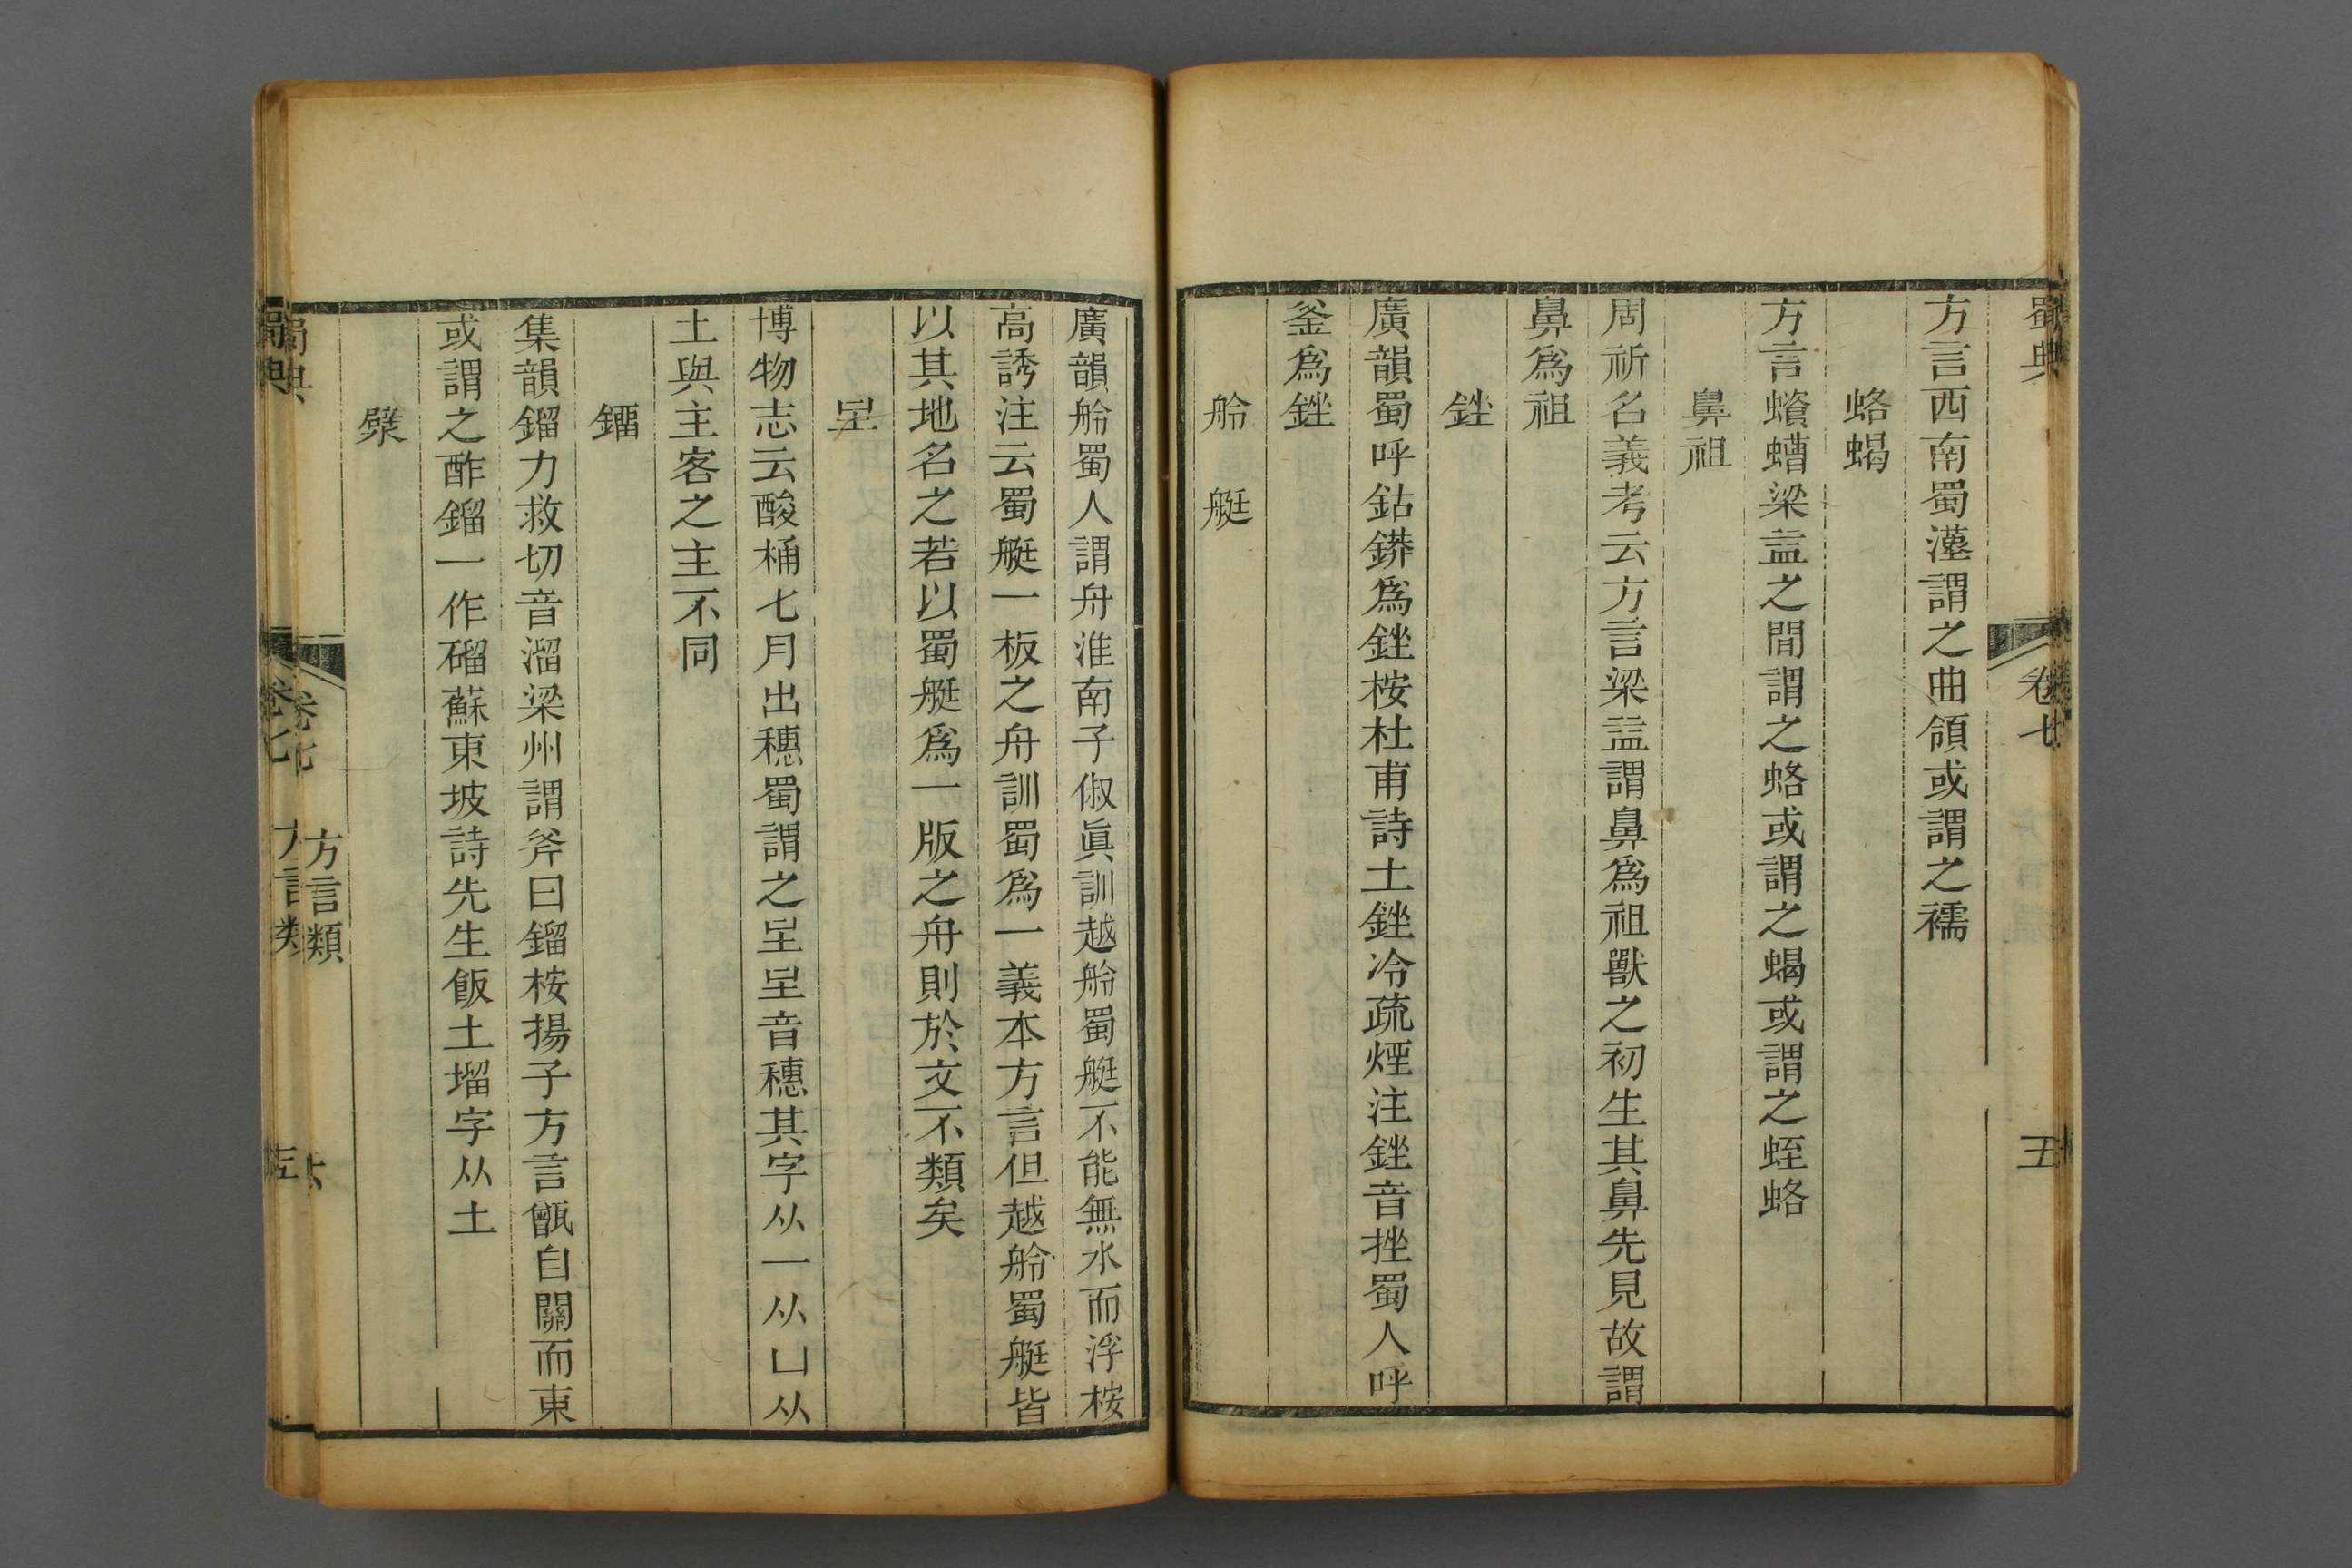 蜀典
卷七
五
方言西南蜀漢謂之曲領或謂之襦
蛒蝎
方言蠀螬梁益之間謂之蛒或謂之蝎或謂之蛭蛒
鼻祖
周祈名義考云方言梁益謂鼻爲祖獸之初生其鼻先見故謂
鼻爲祖
銼
廣韻蜀呼鈷䥈爲銼桉杜甫詩土銼冷疏煙注銼音挫蜀人呼
釜爲銼
舲艇
廣韻舲蜀人謂舟淮南子俶眞訓越舲蜀艇不能無水而浮桉
高誘注云蜀艇一板之舟訓蜀爲一義本方言但越舲蜀艇皆
以其地名之若以蜀艇爲一版之舟則於文不類矣
博物志云酸桶七月出穗蜀謂之音穗其字从一从凵从
土與主客之主不同
鎦
集韻鎦力救切音溜梁州謂斧曰鎦桉揚子方言甑自關而東
或謂之酢鎦一作磂蘇東坡詩先生飯土塯字从土
蜀典
卷七
方言類
六